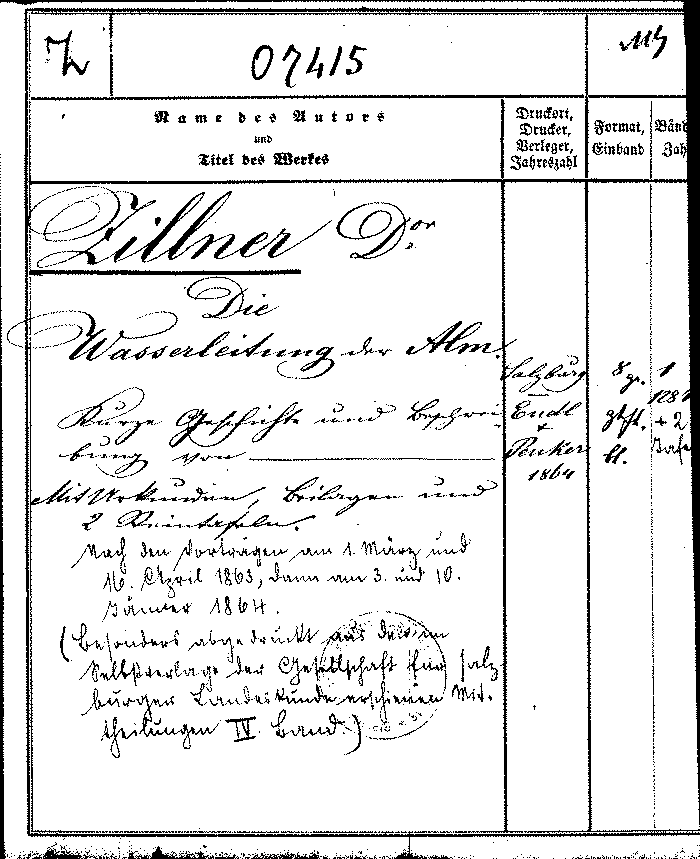 Z
07415
Name des Autors
und
Titel des Werkes
Druckort,
Drucker,
Verleger,
Jahreszahl
Format,
Einband
Bänd
Zah
Zillner Dor.
Die
Wasserleitung der Alm.
Kurze Geschichte und Beschrei-
bung von
Mit Urkunden, Beilagen und
2 Steintafeln.
Nach den Vorträgen am 1. März und
16. April 1863, dann am 3. und 10.
Jänner 1864.
(Besonders abgedruckt aus den im
Selbstverlage der Gesellschaft für Salz
burger Landeskunde erschienen Mit-
theilungen IV. Band.)
Salzburg
Endl
+
Penker
1864
8 gr.
bl.
1
128
+ 2
Tafe